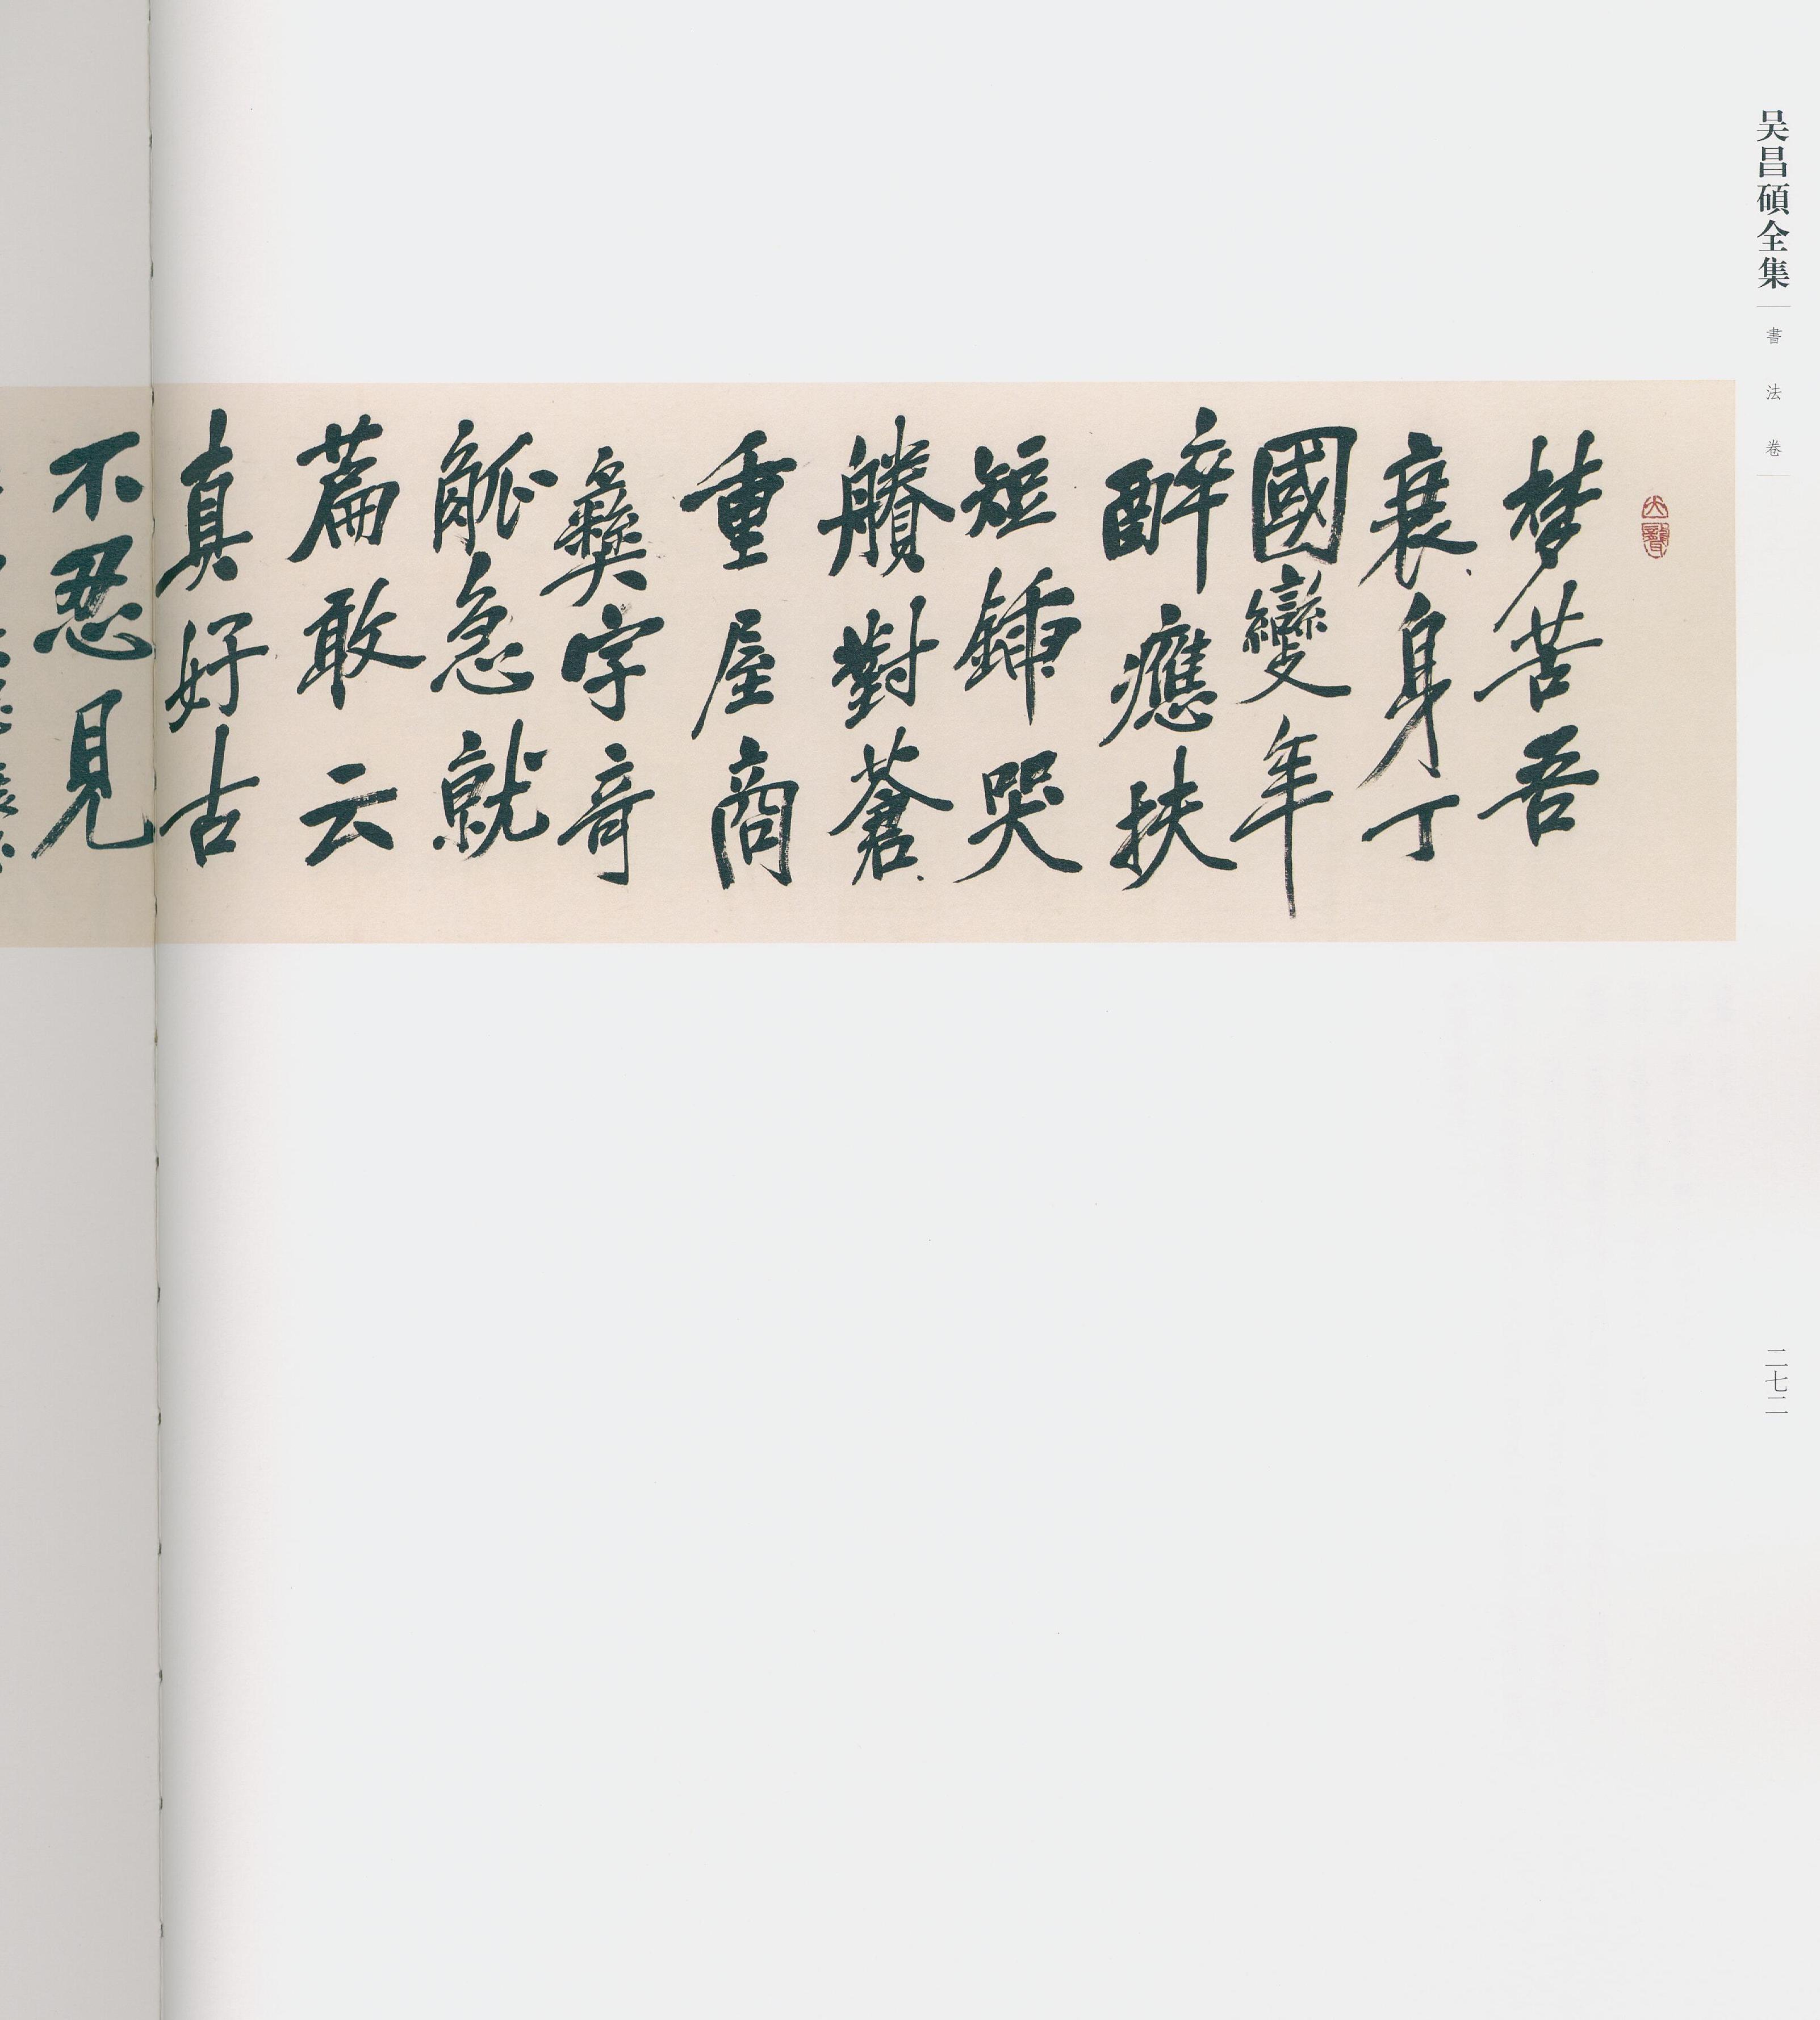 吴昌碩全集
書法卷
二七二
大聾
梦苦吾
衰身丁
國變年
醉應扶
短鍤哭
賸對蒼
重屋商
彝字奇
觚急就
篇敢云
真好古
不忍見